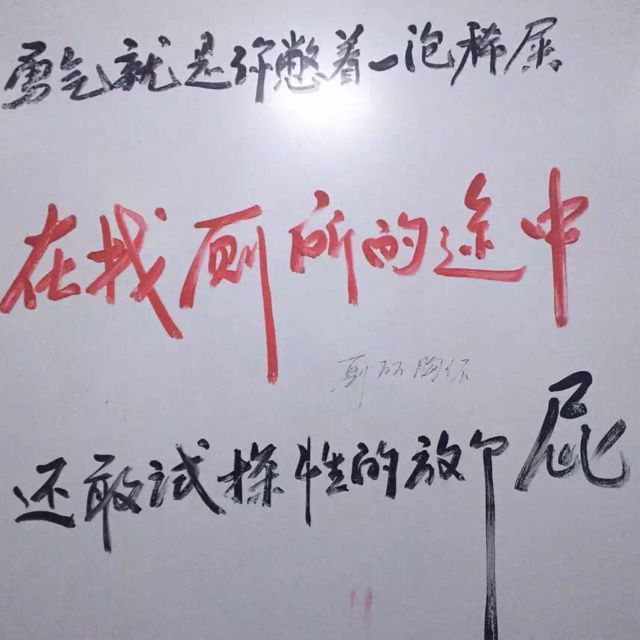 勇气就是你憋着一泡稀屎
在找厕所的途中
还敢试探性的放个屁